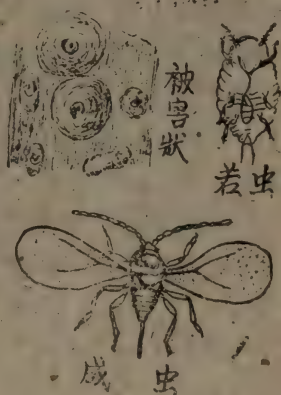 被害狀
若虫
成虫